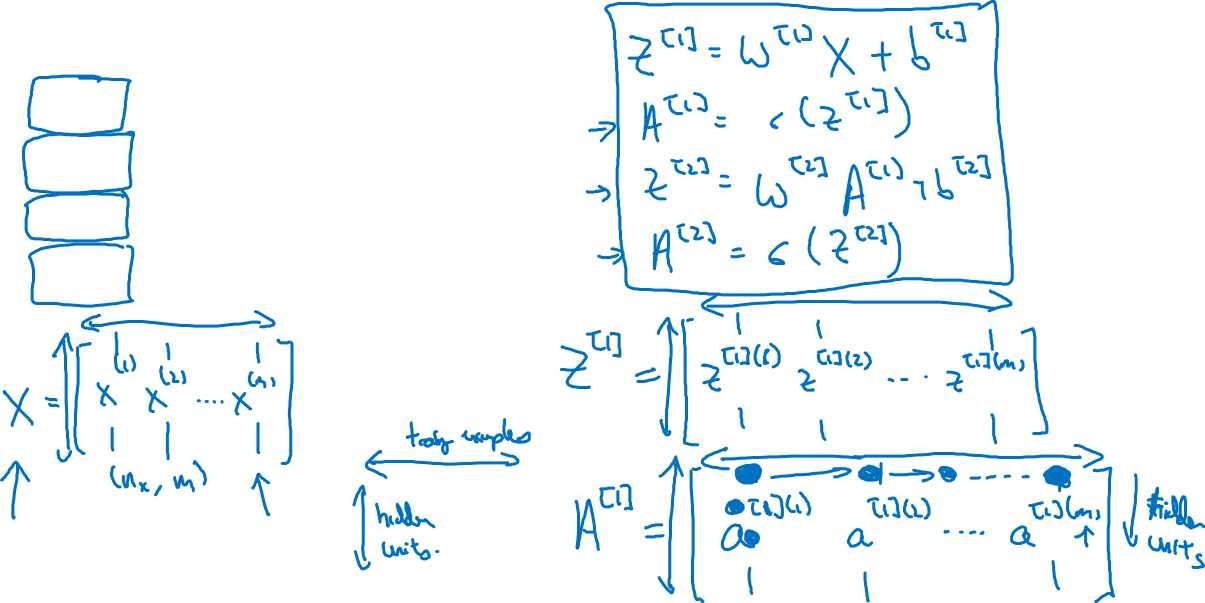 Z^[1] = W^[1] X + b^[1]
→ A^[1] = σ(Z^[1])
→ Z^[2] = W^[2] A^[1] + b^[2]
→ A^[2] = σ(Z^[2])
X = [ x^(1) x^(2) .... x^(m) ]
(n_x, m)
examples
hidden
units.
Z^[1] = [ z^[1](1) z^[1](2) ... z^[1](m) ]
A^[1] = [ a^[1](1) a^[1](2) .... a^[1](m) ]
hidden
units